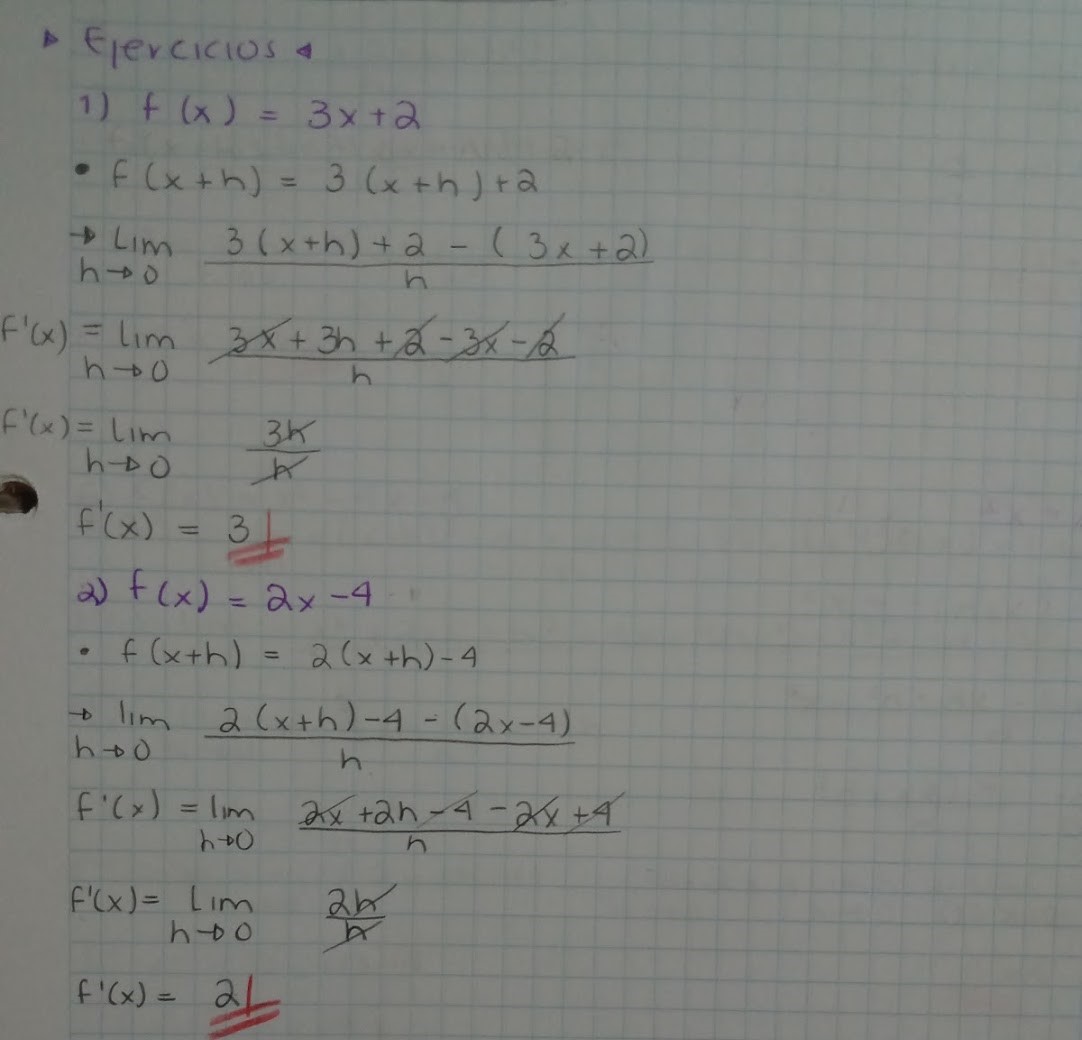 ▸ Ejercicios ◂
1) f (x) = 3x+2
• f (x+h) = 3 (x+h)+2
→ Lim 3(x+h)+2 - (3x+2)
h→0 h
f'(x) = lim 3x + 3h + 2 - 3x - 2
h→0 h
f'(x) = Lim 3h
h→0 h
f'(x) = 3
2) f(x) = 2x -4
• f (x+h) = 2(x+h)-4
→ lim 2(x+h)-4 - (2x-4)
h→0 h
f'(x) = lim 2x +2h -4 -2x +4
h→0 h
f'(x) = Lim 2h
h→0 h
f'(x) = 2